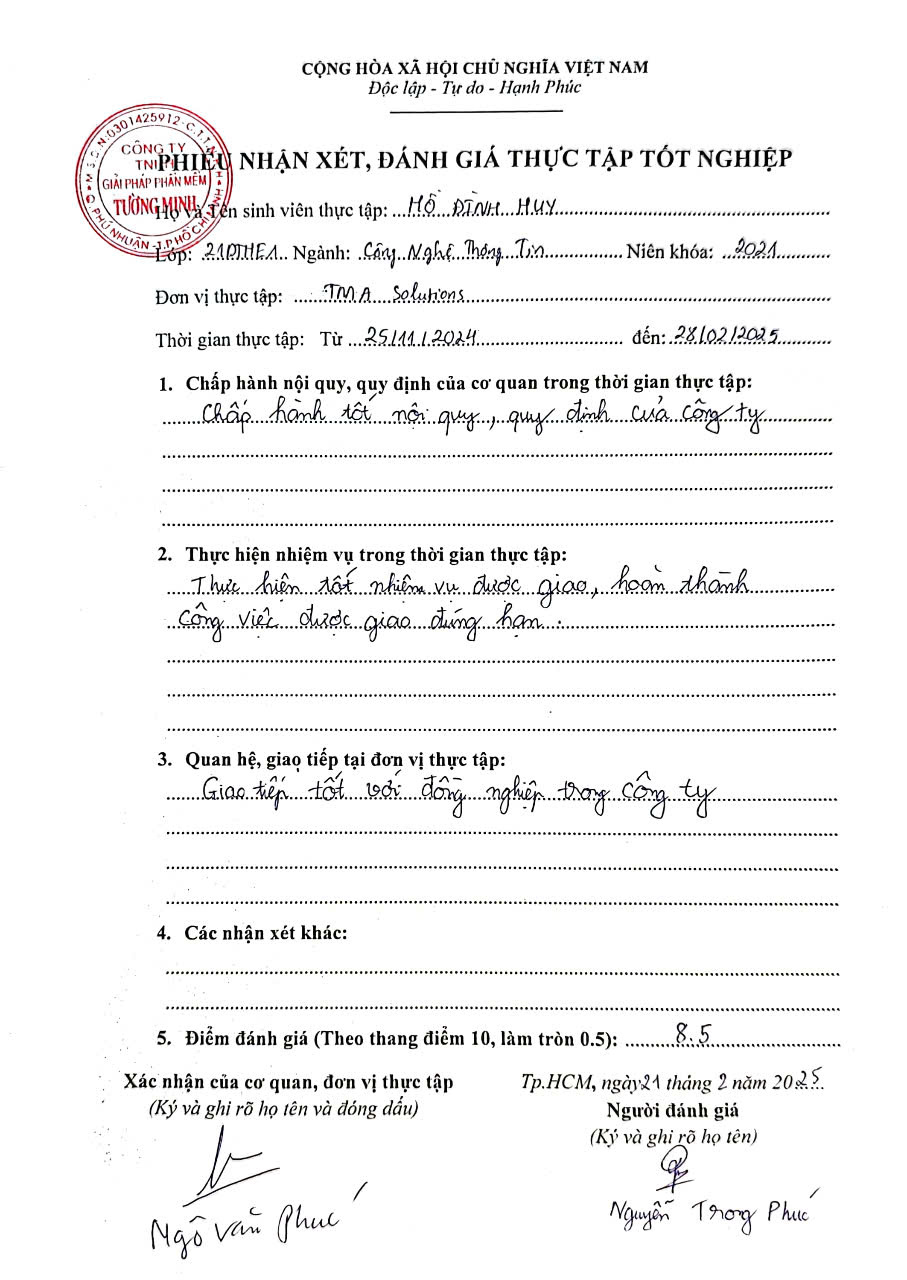 CỘNG HÒA XÃ HỘI CHỦ NGHĨA VIỆT NAM
Độc lập - Tự do - Hạnh Phúc
M.S.D.N:0301425912-C.T.T.N.H.H
CÔNG TY
TNHH
GIẢI PHÁP PHẦN MỀM
TƯỜNG MINH
Q.PHÚ NHUẬN -T.P HỒ CHÍ MINH
PHIẾU NHẬN XÉT, ĐÁNH GIÁ THỰC TẬP TỐT NGHIỆP
Họ và Tên sinh viên thực tập: HỒ ĐÌNH HUY
Lớp: 21DTHE1 Ngành: Công Nghệ Thông Tin Niên khóa: 2021
Đơn vị thực tập: TMA Solutions
Thời gian thực tập: Từ 25/11/2024 đến: 28/02/2025
1. Chấp hành nội quy, quy định của cơ quan trong thời gian thực tập:
Chấp hành tốt nội quy, quy định của công ty
2. Thực hiện nhiệm vụ trong thời gian thực tập:
Thực hiện tốt nhiệm vụ được giao, hoàn thành
công việc được giao đúng hạn.
3. Quan hệ, giao tiếp tại đơn vị thực tập:
Giao tiếp tốt với đồng nghiệp trong công ty
4. Các nhận xét khác:
5. Điểm đánh giá (Theo thang điểm 10, làm tròn 0.5): 8.5
Xác nhận của cơ quan, đơn vị thực tập
(Ký và ghi rõ họ tên và đóng dấu)
Ngô Văn Phúc
Tp.HCM, ngày 21 tháng 2 năm 2025
Người đánh giá
(Ký và ghi rõ họ tên)
Nguyễn Trong Phúc